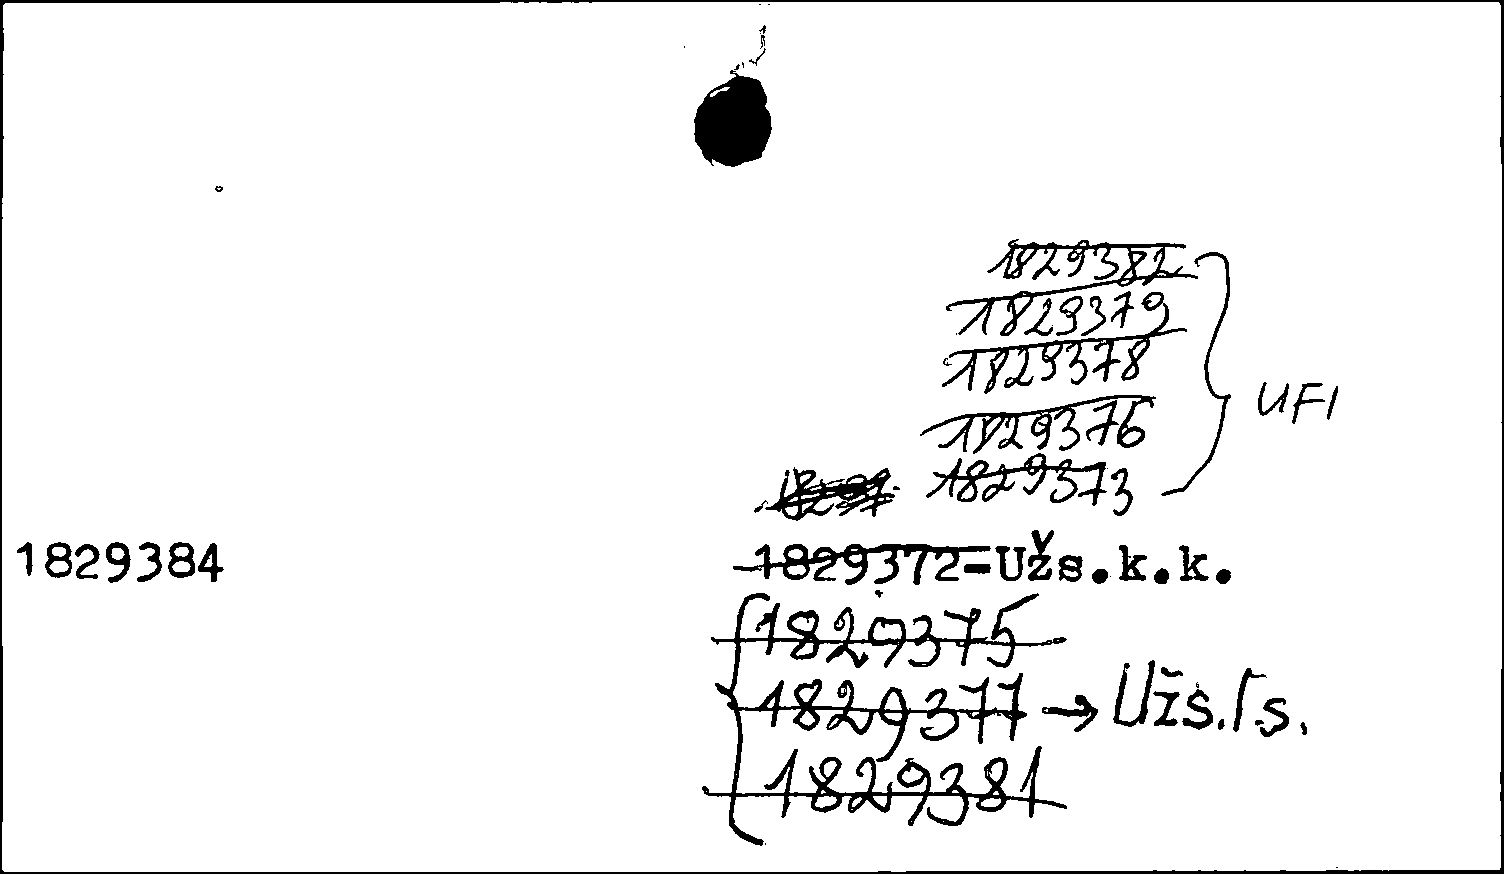 1829382
1829379
1829378
1829376
UFI
1829373
1829384
1829372-Užs.k.k.
1829375
1829377 → Užs.f.s.
1829381